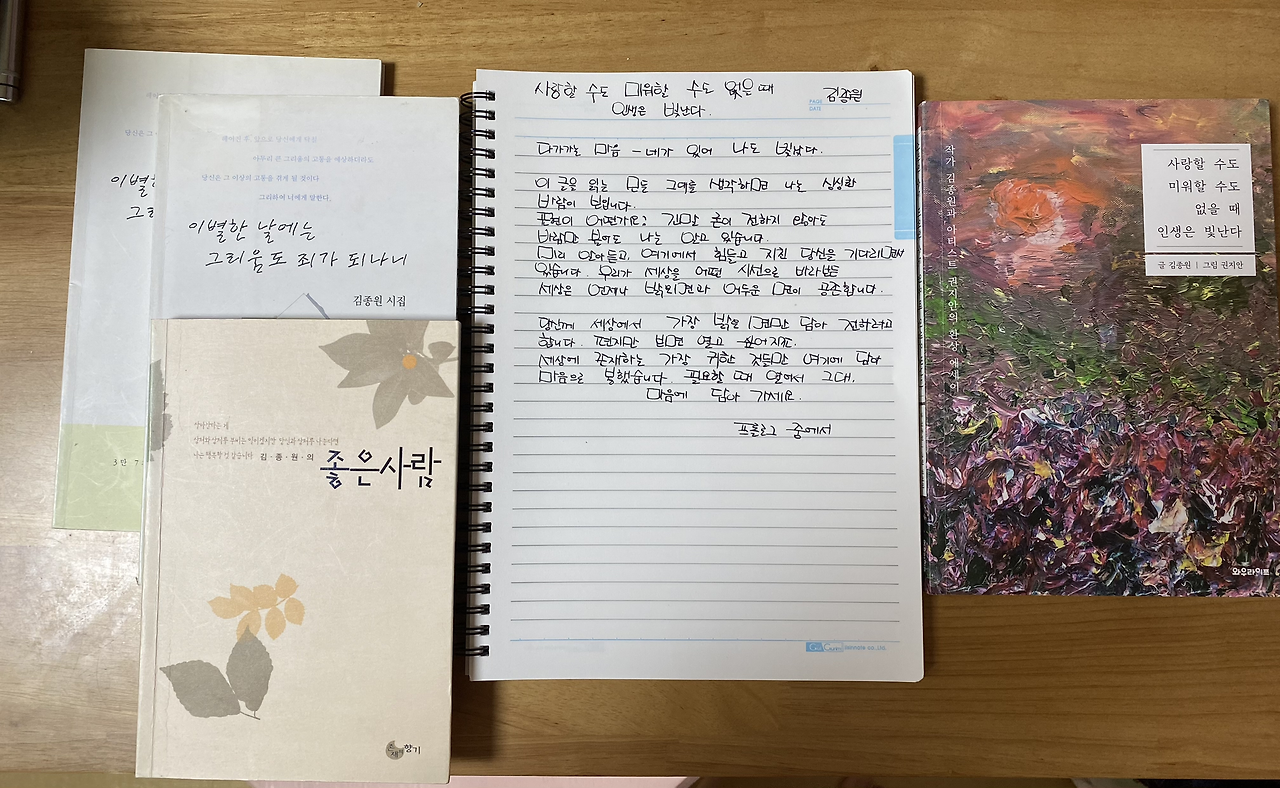 당신은 그
이별한
그리
3만
헤어진 후, 앞으로 당신에게 닥칠
아무리 큰 그리움의 고통을 예상하더라도,
당신은 그 이상의 고통을 겪게 될 것이다
그리하여 너에게 말한다.
이별한 날에는
그리움도 죄가 되나니
김종원 시집
나는 행복할 것 같습니다
김·종·원·의
좋은사람
향기
사랑할 수도 미워할 수도 없을 때
인생은 빛난다.
김종원
PAGE
DATE
다가가는 마음 - 네가 있어 나도 빛났다.
이 글을 읽는 모든 그대를 생각하면 나는 싱싱한
바람이 보입니다.
표현이 어떤가요? 진말 흔이 전하지 않아도
바람만 불어도 나는 알고 있습니다.
미리 알아듣고, 여기에서 힘들고 지친 당신을 기다리면서
있습니다. 우리가 세상을 어떤 시선으로 바라보든
세상은 언제나 밝은면과 어두운 면이 공존합니다.
당신께 세상에서 가장 밝은 면만 담아 전하려고
합니다. 편지만 봉면 열고 싶어지죠.
세상에 존재하는 가장 귀한 것들만 여기에 담아
마음으로 봉했습니다. 필요할 때 열어서 그대.
마음에 담아 가세요.
프롤로그 중에서
작가 김종원과 아티스트 권지안의 환상 에세이
사랑할 수도
미워할 수도
없을 때
인생은 빛난다
글 김종원 | 그림 권지안
와우라이프